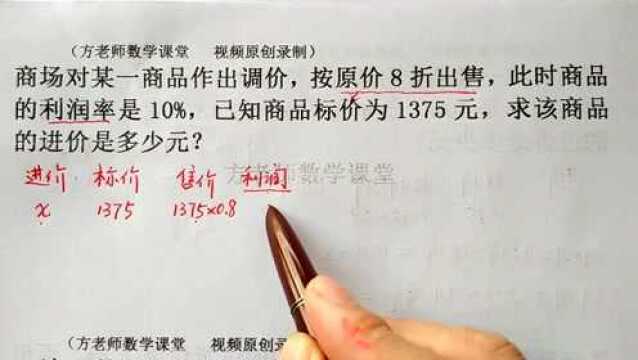 （方老师数学课堂 视频原创录制）
商场对某一商品作出调价，按原价8折出售，此时商品
的利润率是10%，已知商品标价为1375元，求该商品
的进价是多少元？
方老师数学课堂
进价 标价 售价 利润
x 1375 1375×0.8
（方老师数学课堂 视频原创录